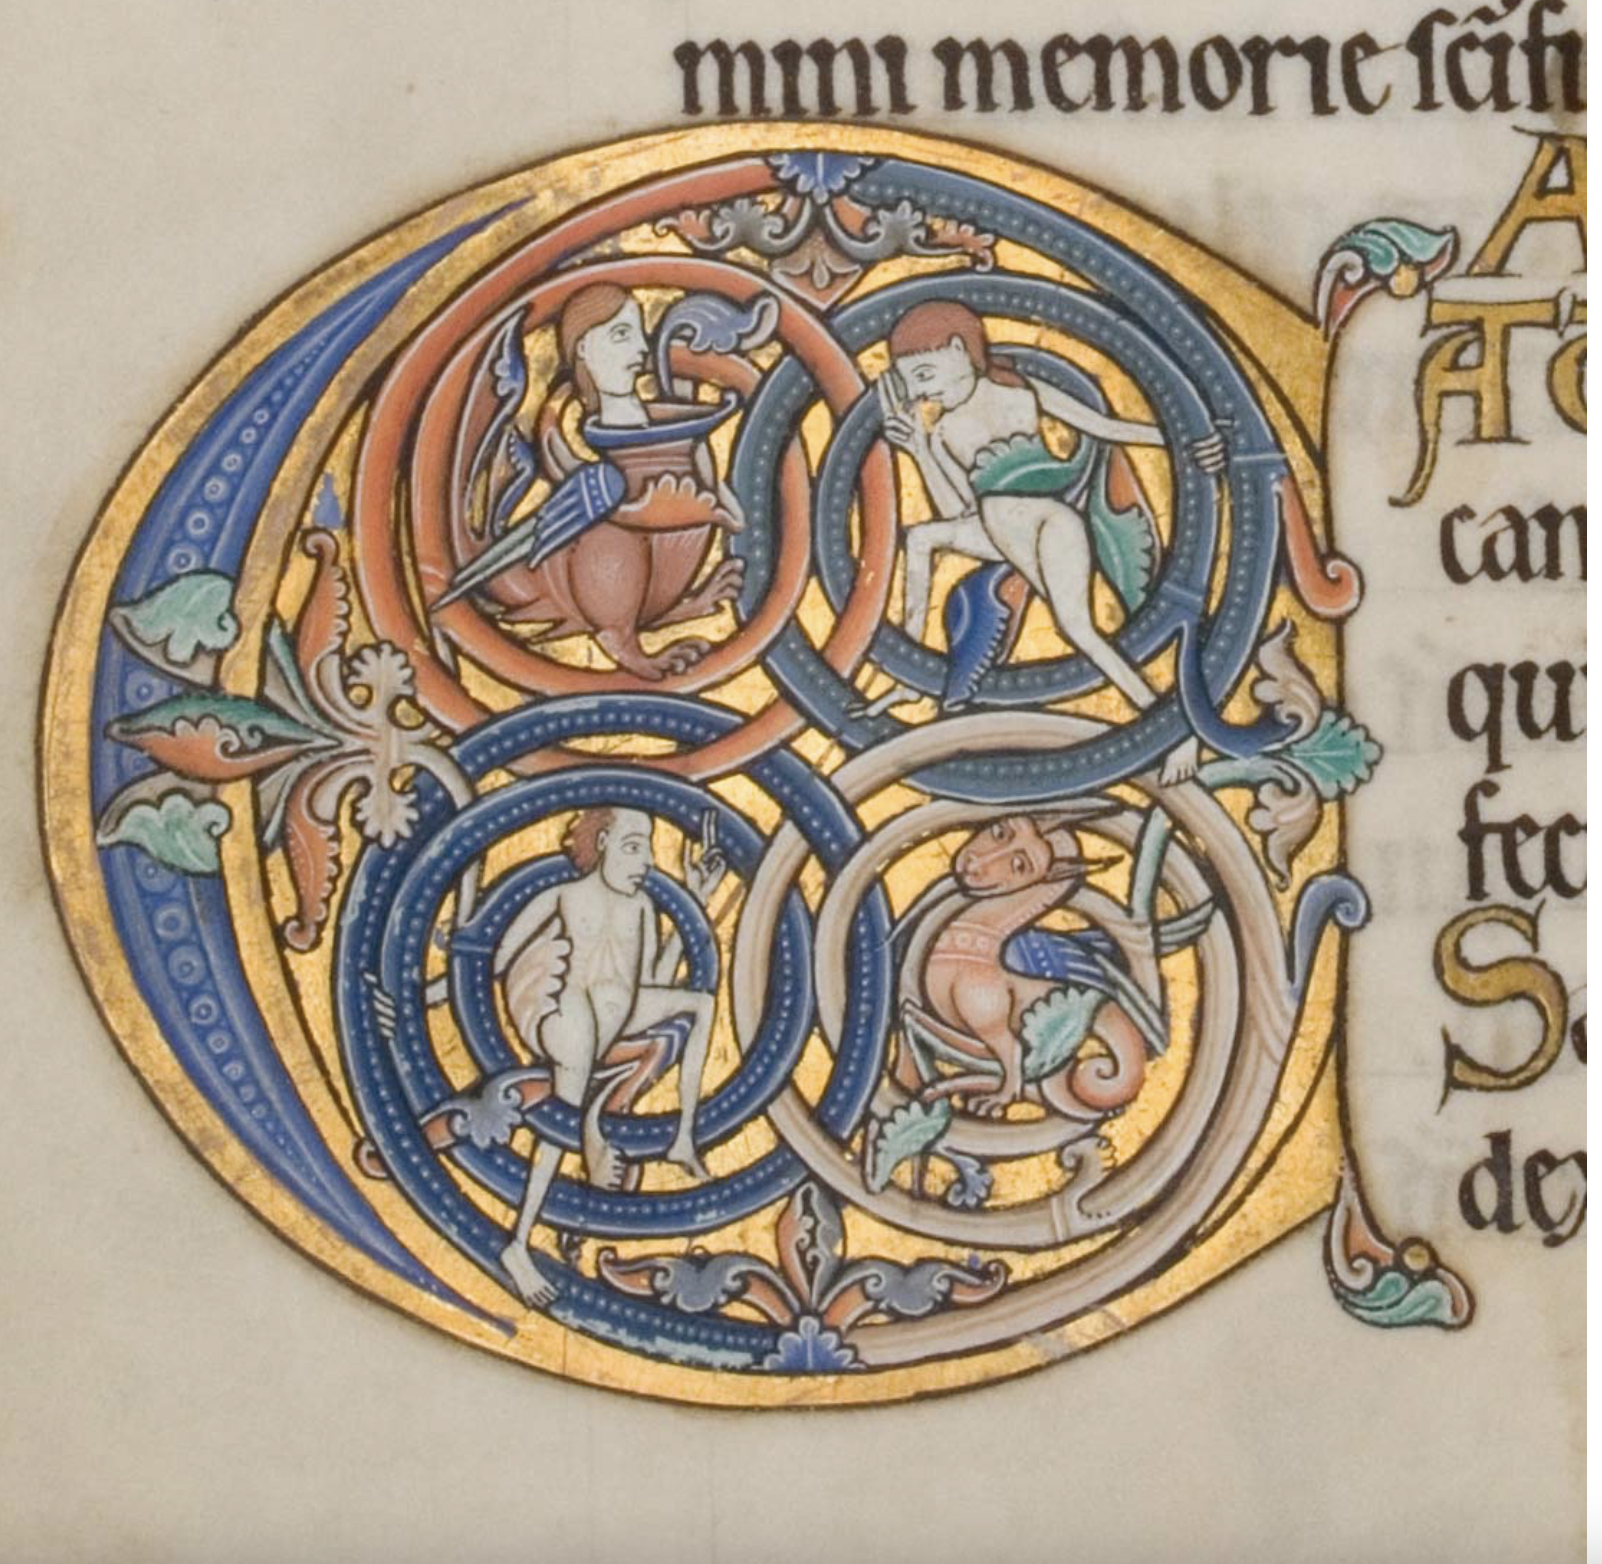 mini memorie sc̃ifi
A
AT
can
qu
fec
S
dex